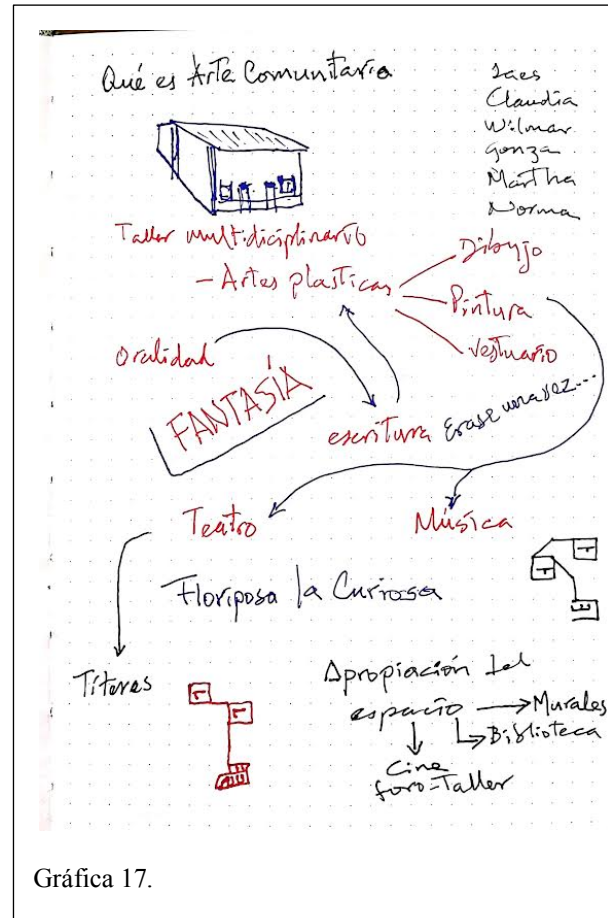 Qué es Arte Comunitario
Claudia
Wilmar
Gonza
Martha
Norma
Taller multidiciplinario
- Artes plasticas
Dibujo
Pintura
Vestuario
Oralidad
FANTASÍA
escritura Erase una vez...
Teatro
Música
Floriposa la Curiosa
Títeres
Apropiación del
espacio → Murales
Biblioteca
Cine
foro-Taller
Gráfica 17.